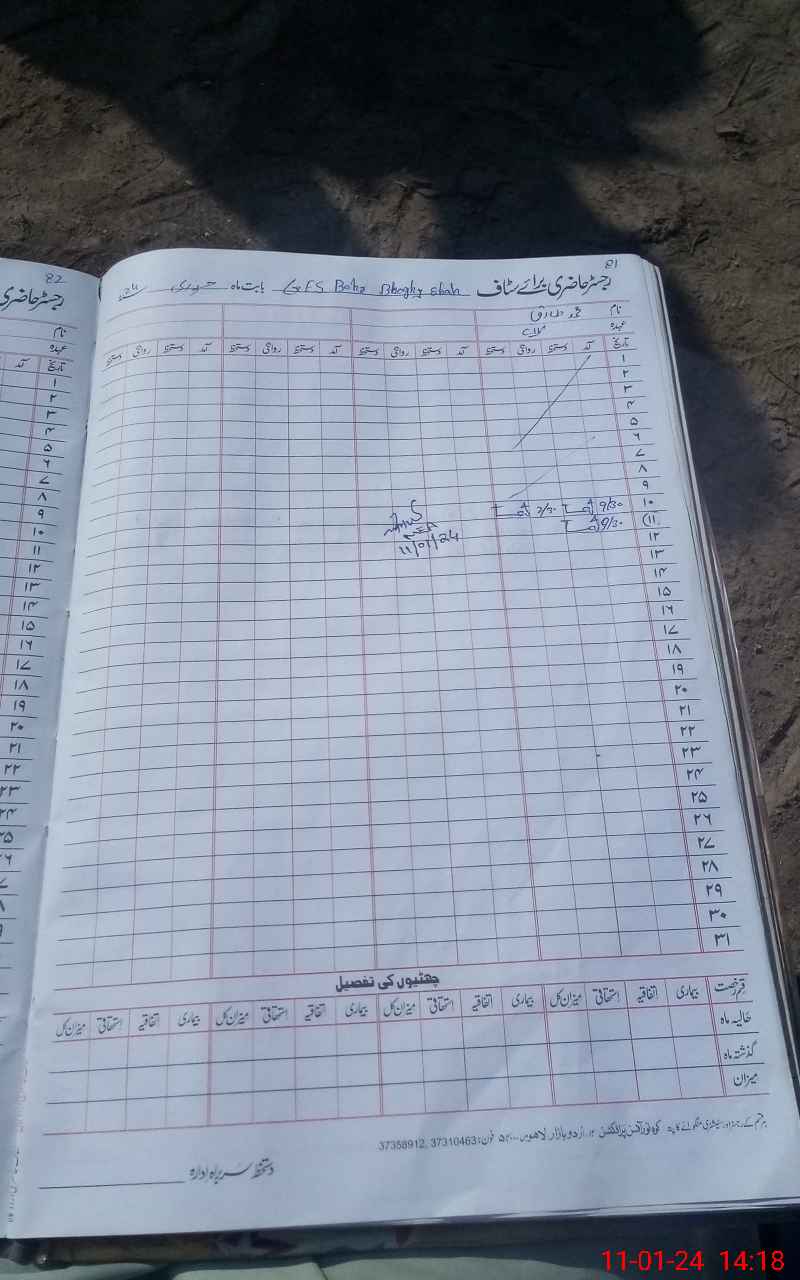 82
رجسٹر حاضری
نام
عہدہ
تاریخ آمد
۱
۲
۳
۴
۵
۶
۷
۸
۹
۱۰
۱۱
۱۲
۱۳
۱۴
۱۵
۱۶
۱۷
۱۸
۱۹
۲۰
۲۱
۲۲
۲۳
۲۴
۲۵
۲۶
81
رجسٹر حاضری برائے سٹاف GES Bhoghy Shah بابت ماہ جنوری
نام محمد طارق
عہدہ
تاریخ آمد دستخط روانگی دستخط آمد دستخط روانگی دستخط آمد دستخط روانگی دستخط آمد دستخط روانگی دستخط
۱
۲
۳
۴
۵
۶
۷
۸
۹
۱۰ 9/30 2/30
۱۱ 9/30
11/01/24
۱۲
۱۳
۱۴
۱۵
۱۶
۱۷
۱۸
۱۹
۲۰
۲۱
۲۲
۲۳
۲۴
۲۵
۲۶
۲۷
۲۸
۲۹
۳۰
۳۱
چھٹیوں کی تفصیل
قسم رخصت بیماری اتفاقیہ استحقاقی میزان کل بیماری اتفاقیہ استحقاقی میزان کل بیماری اتفاقیہ استحقاقی میزان کل بیماری اتفاقیہ استحقاقی میزان کل
حالیہ ماہ
گذشتہ ماہ
میزان
ہر قسم کے رجسٹر اور سٹیشنری منگوانے کا پتہ اردو بازار لاہور فون: 37310463, 37358912
دستخط سربراہ ادارہ
11-01-24 14:18